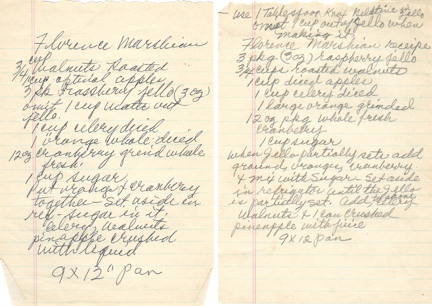 Florence Marshian
cup
3/4 Walnuts Roasted
1 cup optinal apples
3 pk Raspberry Jello (3 oz)
omit 1 cup water out
jello.
1 cup celery diced
1 orange whole, diced
12 oz cranberry grind whole
fresh.
1 cup sugar
Put orange & cranberry
together - Set aside in
ref - sugar in it,
celery, walnuts
pineapple crushed
with liquid
9 X 12" Pan
use 1 Tablespoon Knox Gelatine & Jello
omit 1 cup out of Jello when
making it!
Florence Marshian recipe
3 pkg (3 oz) raspberry Jello
3/4 cups roasted walnuts
1 cup diced apples
1 cup celery diced
1 large orange grinded
12 oz pkg whole fresh
cranberry
1 cup sugar
when Jello partially sets add
ground orange, cranberry
& mix with Sugar. Set aside
in refrigator until the Jello
is partially set. Add celery
Walnuts & 1 can crushed
pineapple with juice
9 X 12 Pan